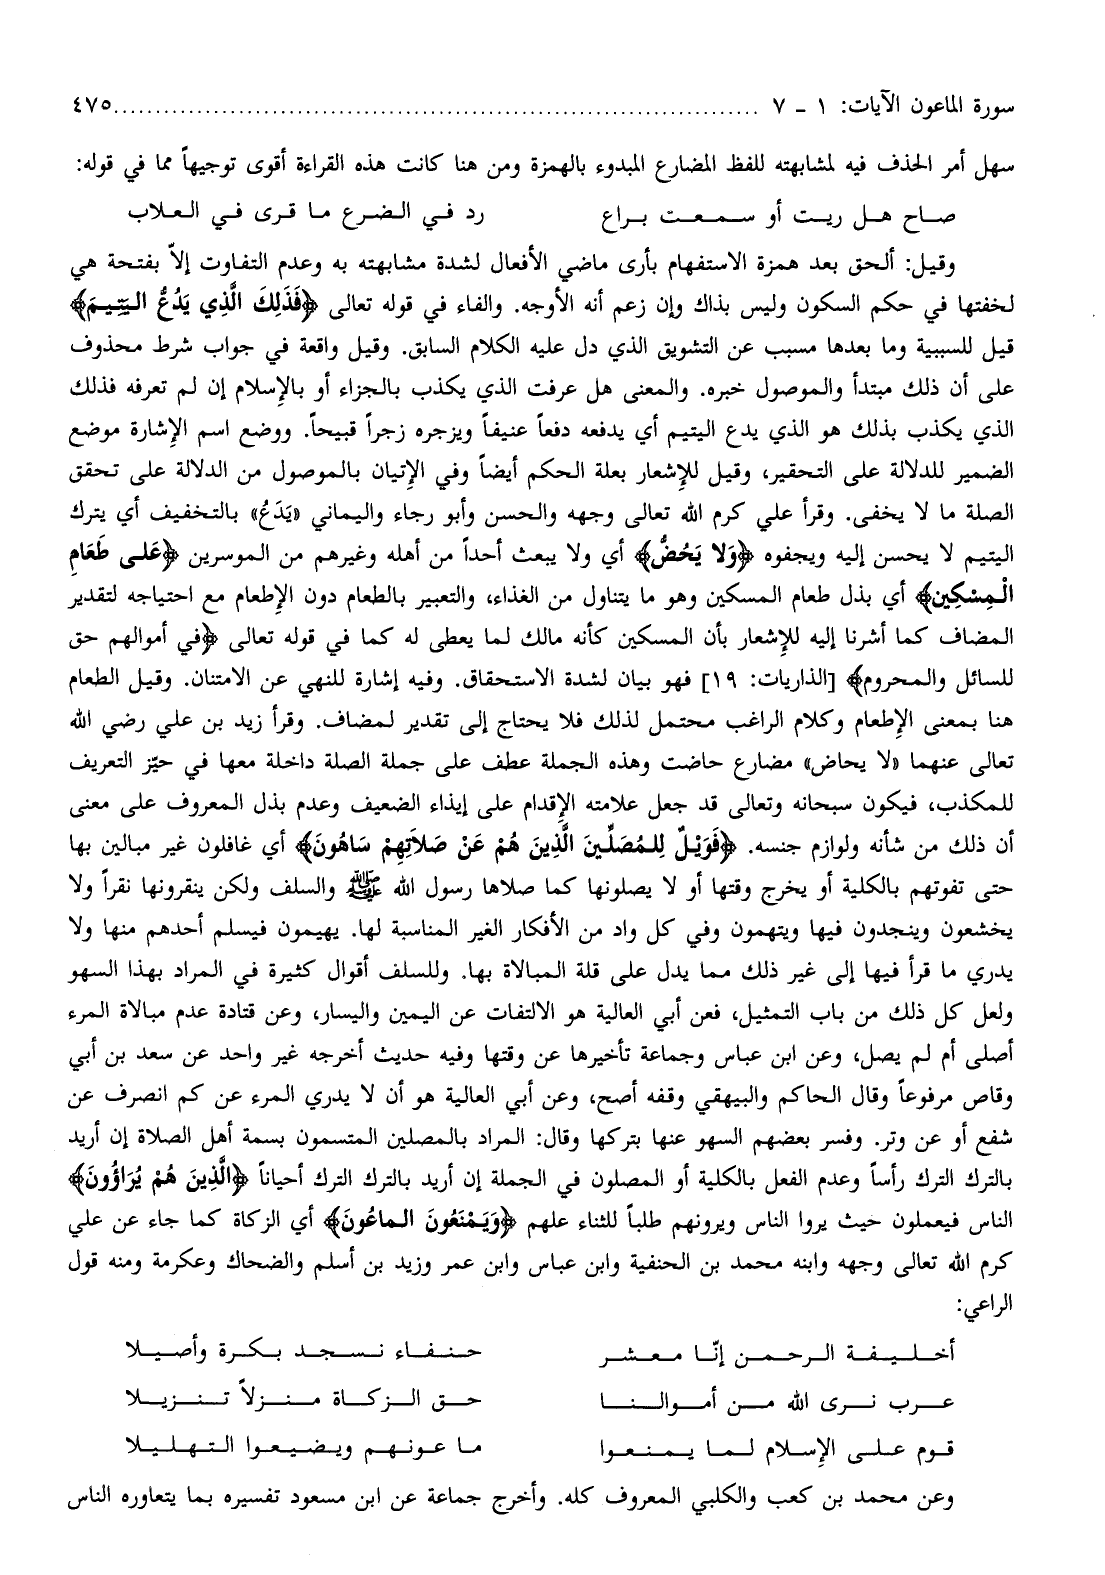 سورة الماعون الآيات: ١ - ٧ ............................................................ ٤٧٥
سهل أمر الحذف فيه لمشابهته للفظ المضارع المبدوء بالهمزة ومن هنا كانت هذه القراءة أقوى توجيهاً مما في قوله:
صاح هل ريت أو سمعت براع    رد في الضرع ما قرى في العلاب
وقيل: ألحق بعد همزة الاستفهام بأرى ماضي الأفعال لشدة مشابهته به وعدم التفاوت إلاّ بفتحة هي
لخفتها في حكم السكون وليس بذاك وإن زعم أنه الأوجه. والفاء في قوله تعالى ﴿فَذَلِكَ الَّذِي يَدُعُّ الْيَتِيمَ﴾
قيل للسببية وما بعدها مسبب عن التشويق الذي دل عليه الكلام السابق. وقيل واقعة في جواب شرط محذوف
على أن ذلك مبتدأ والموصول خبره. والمعنى هل عرفت الذي يكذب بالجزاء أو بالإسلام إن لم تعرفه فذلك
الذي يكذب بذلك هو الذي يدع اليتيم أي يدفعه دفعاً عنيفاً ويزجره زجراً قبيحاً. ووضع اسم الإشارة موضع
الضمير للدلالة على التحقير، وقيل للإشعار بعلة الحكم أيضاً وفي الإتيان بالموصول من الدلالة على تحقق
الصلة ما لا يخفى. وقرأ علي كرم الله تعالى وجهه والحسن وأبو رجاء واليماني «يَدَعُ» بالتخفيف أي يترك
اليتيم لا يحسن إليه ويجفوه ﴿وَلا يَحُضُّ﴾ أي ولا يبعث أحداً من أهله وغيرهم من الموسرين ﴿عَلى طَعَامِ
الْمِسْكِين﴾ أي بذل طعام المسكين وهو ما يتناول من الغذاء، والتعبير بالطعام دون الإطعام مع احتياجه لتقدير
المضاف كما أشرنا إليه للإشعار بأن المسكين كأنه مالك لما يعطى له كما في قوله تعالى ﴿في أموالهم حق
للسائل والمحروم﴾ [الذاريات: ١٩] فهو بيان لشدة الاستحقاق. وفيه إشارة للنهي عن الامتنان. وقيل الطعام
هنا بمعنى الإطعام وكلام الراغب محتمل لذلك فلا يحتاج إلى تقدير لمضاف. وقرأ زيد بن علي رضي الله
تعالى عنهما «لا يحاض» مضارع حاضت وهذه الجملة عطف على جملة الصلة داخلة معها في حيّز التعريف
للمكذب، فيكون سبحانه وتعالى قد جعل علامته الإقدام على إيذاء الضعيف وعدم بذل المعروف على معنى
أن ذلك من شأنه ولوازم جنسه. ﴿فَوَيْلٌ لِلمُصَلِّينَ الَّذِينَ هُمْ عَنْ صَلاَتِهِمْ سَاهُونَ﴾ أي غافلون غير مبالين بها
حتى تفوتهم بالكلية أو يخرج وقتها أو لا يصلونها كما صلاها رسول الله ﷺ والسلف ولكن ينقرونها نقراً ولا
يخشعون وينجدون فيها ويتهمون وفي كل واد من الأفكار الغير المناسبة لها. يهيمون فيسلم أحدهم منها ولا
يدري ما قرأ فيها إلى غير ذلك مما يدل على قلة المبالاة بها. وللسلف أقوال كثيرة في المراد بهذا السهو
ولعل كل ذلك من باب التمثيل، فعن أبي العالية هو الالتفات عن اليمين واليسار، وعن قتادة عدم مبالاة المرء
أصلى أم لم يصل، وعن ابن عباس وجماعة تأخيرها عن وقتها وفيه حديث أخرجه غير واحد عن سعد بن أبي
وقاص مرفوعاً وقال الحاكم والبيهقي وقفه أصح، وعن أبي العالية هو أن لا يدري المرء عن كم انصرف عن
شفع أو عن وتر. وفسر بعضهم السهو عنها بتركها وقال: المراد بالمصلين المتسمون بسمة أهل الصلاة إن أريد
بالترك الترك رأساً وعدم الفعل بالكلية أو المصلون في الجملة إن أريد بالترك الترك أحياناً ﴿الَّذِينَ هُمْ يُرَاؤُونَ﴾
الناس فيعملون حيث يروا الناس ويرونهم طلباً للثناء علهم ﴿وَيَمْنَعُونَ الماعُونَ﴾ أي الزكاة كما جاء عن علي
كرم الله تعالى وجهه وابنه محمد بن الحنفية وابن عباس وابن عمر وزيد بن أسلم والضحاك وعكرمة ومنه قول
الراعي:
أخليفة الرحمن إنّا معشر    حنفاء نسجد بكرة وأصيلا
عرب نرى الله من أموالنا    حق الزكاة منزلاً تنزيلا
قوم على الإسلام لما يمنعوا    ما عونهم ويضيعوا التهليلا
وعن محمد بن كعب والكلبي المعروف كله. وأخرج جماعة عن ابن مسعود تفسيره بما يتعاوره الناس